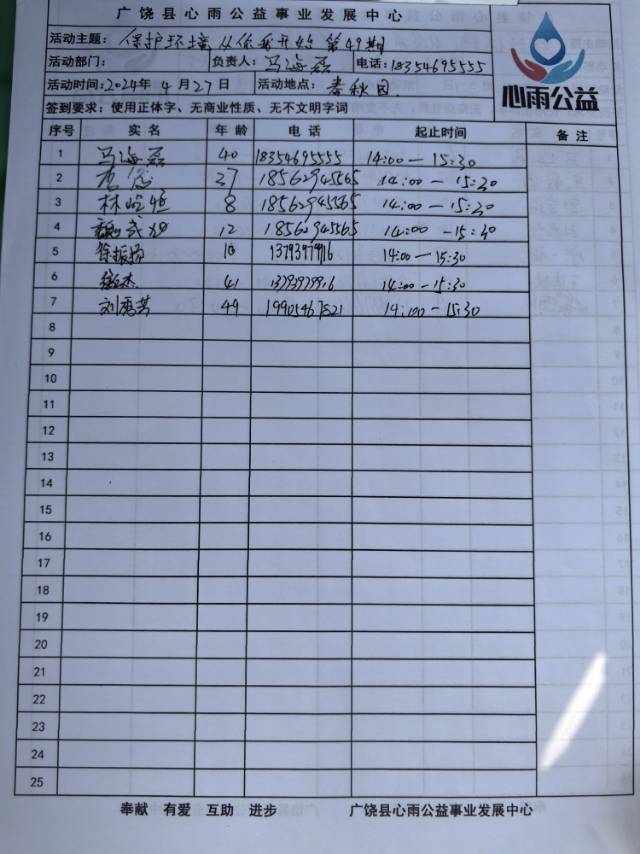 广饶县心雨公益事业发展中心
活动主题：保护环境从你我开始 第49期
活动部门： 负责人：马海磊 电话：18354695555
活动时间：2024年 4 月 27 日 活动地点：春秋园
签到要求：使用正体字、无商业性质、无不文明字词
心雨公益
序号 实 名 年 龄 电 话 起止时间 备 注
1 马海磊 40 18354695555 14:00—15:30
2 37 18562945565 14:00—15:30
3 林 8 18562945565 14:00—15:30
4 魏 12 18562945565 14:00—15:30
5 徐振 10 14:00—15:30
6 41 14:00—15:30
7 刘秀芳 49 19905467521 14:00—15:30
8
9
10
11
12
13
14
15
16
17
18
19
20
21
22
23
24
25
奉献 有爱 互助 进步 广饶县心雨公益事业发展中心